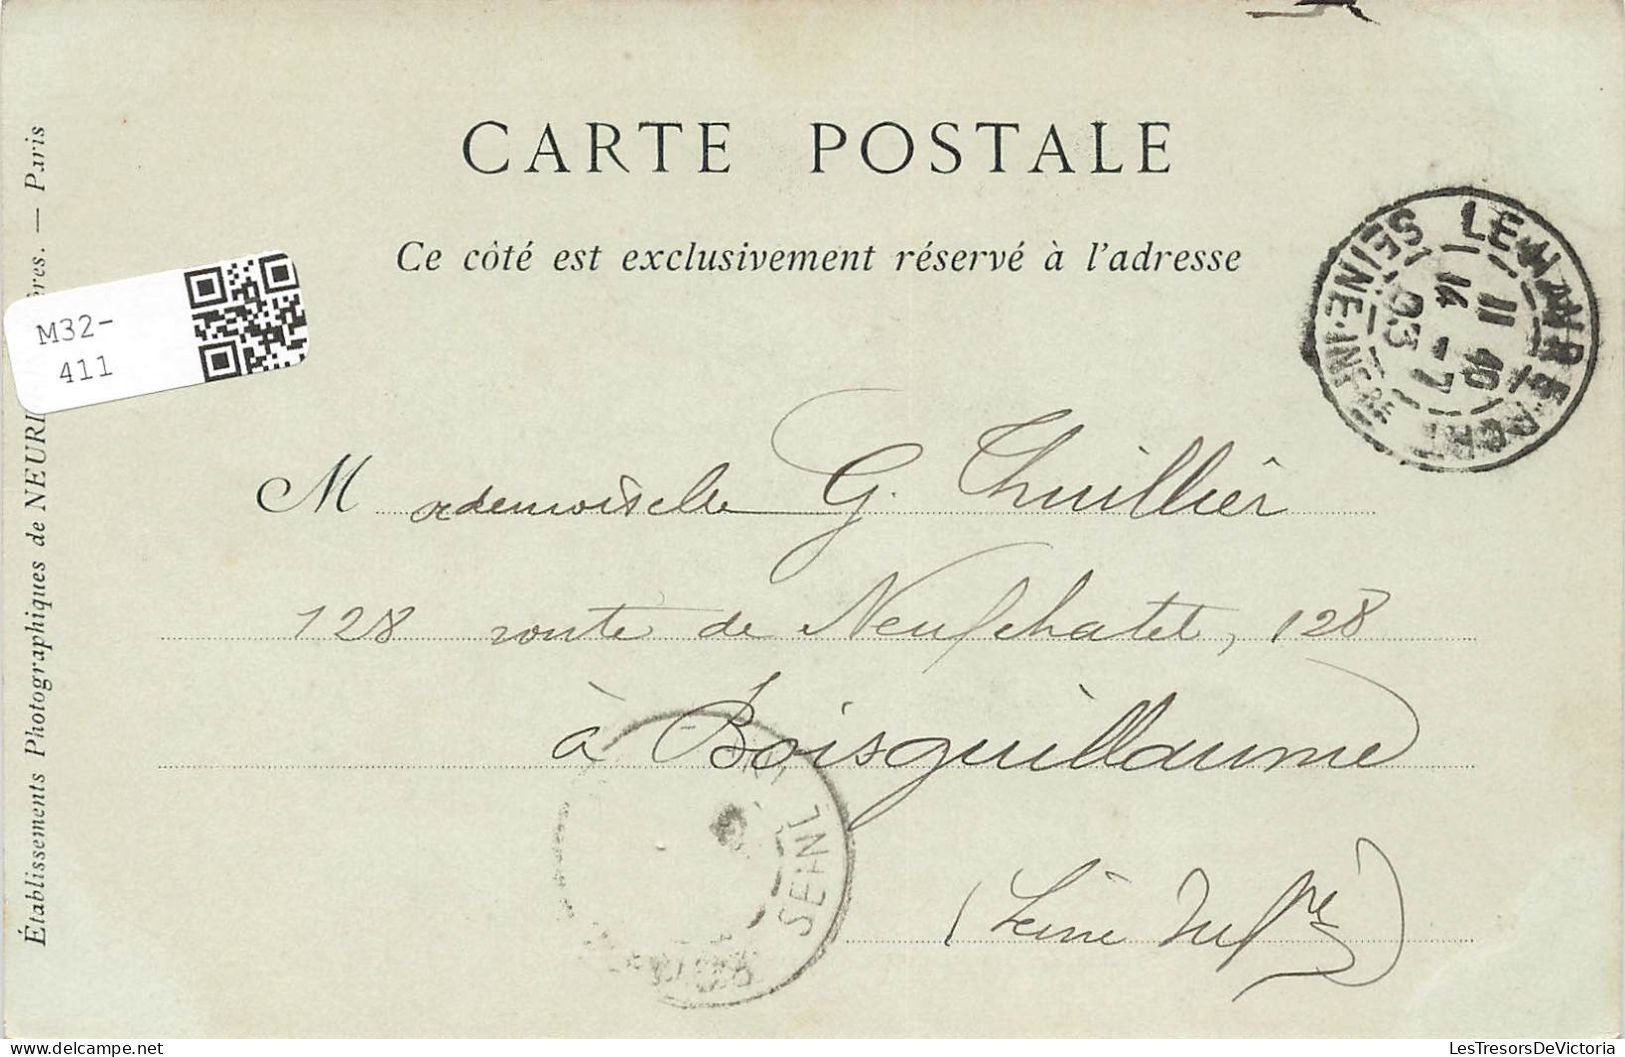 CARTE POSTALE
Ce côté est exclusivement réservé à l'adresse
M32-
411
Établissements Photographiques de NEUR ères. — Paris
LE HAVRE
SEINE-INFRE
11 40
14 - 7
03
Mademoiselle G. Thuillier
128 route de Neufchatel, 128
à Boisguillaume
(Seine Infre)
SEINE
LesTresorsDeVictoria
https://www.delcampe.net